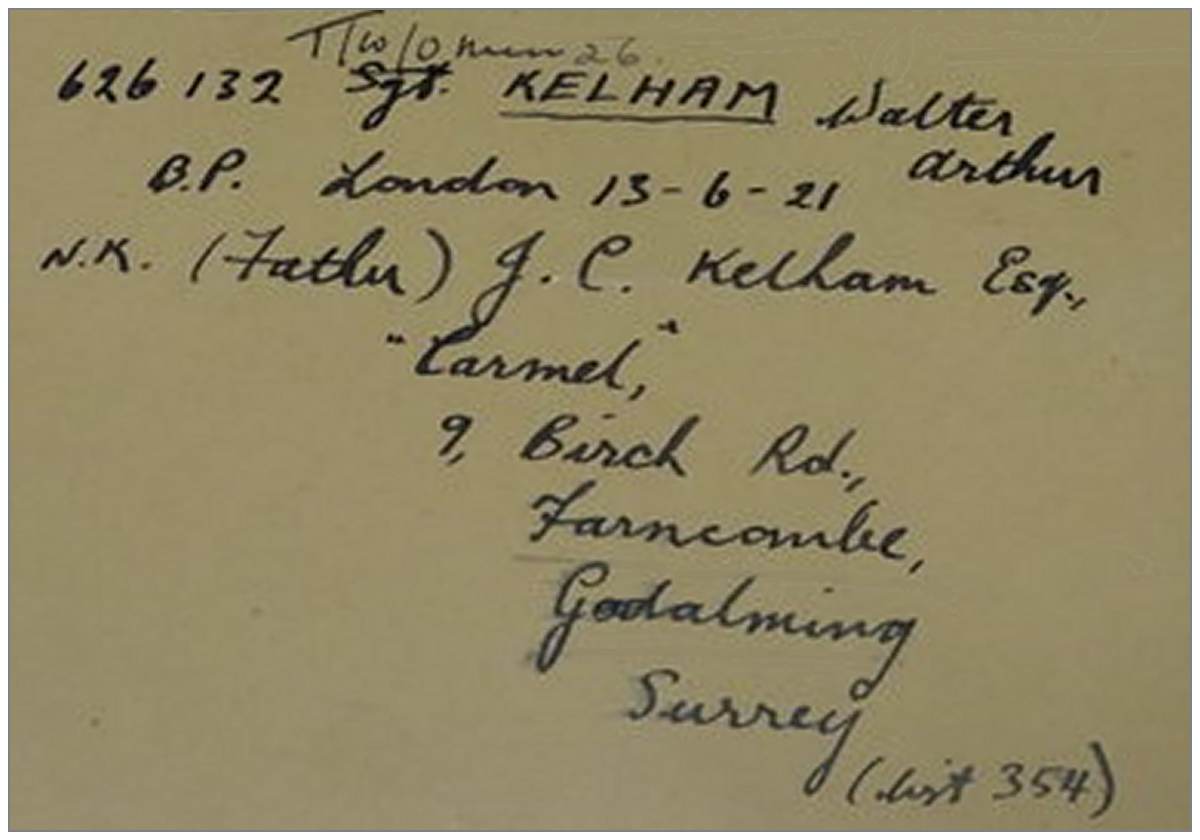 T/W/O 26.
626132 Sgt. KELHAM Walter
Arthur
B.P. London 13-6-21
N.K. (Father) J. C. Kelham Esq.,
"Carmel,"
9, Birch Rd.,
Farncombe,
Godalming
Surrey
(List 354)